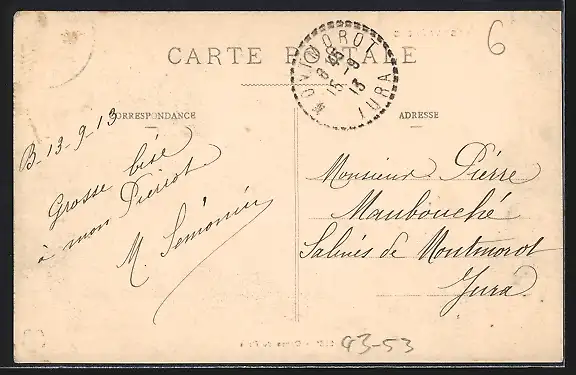 6
CARTE POSTALE
MONTMOROT
JURA
15-8
13
CORRESPONDANCE
ADRESSE
B-13-9-13
Grosse bise
à mon Pierrot
M. Semonin
Monsieur Pierre
Maubouché
Salines de Montmorot
Jura
93-53